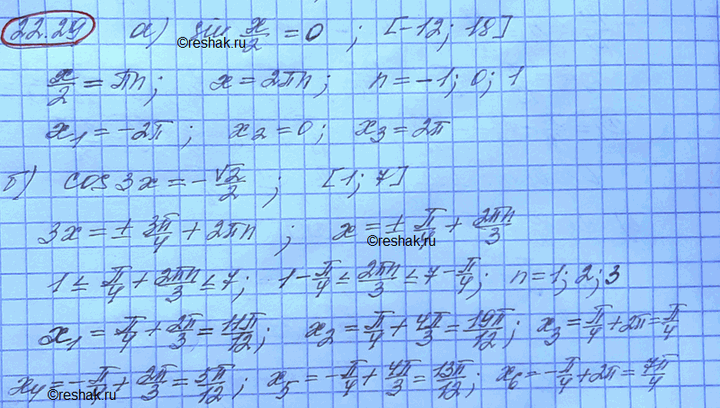 22.24 а) sin x/2 = 0 ; [-12; 18]
©reshak.ru
x/2 = πn; x = 2πn; n = -1; 0; 1
x₁ = -2π ; x₂ = 0; x₃ = 2π
б) cos 3x = -√2/2 ; [1; 7]
3x = ± 3π/4 + 2πn ; x = ± π/4 + 2πn/3
©reshak.ru
1 ≤ π/4 + 2πn/3 ≤ 7; 1 - π/4 ≤ 2πn/3 ≤ 7 - π/4; n = 1; 2; 3
x₁ = π/4 + 2π/3 = 11π/12; x₂ = π/4 + 4π/3 = 19π/12; x₃ = π/4 + 2π = π/4
x₄ = -π/4 + 2π/3 = 5π/12; x₅ = -π/4 + 4π/3 = 13π/12; x₆ = -π/4 + 2π = 7π/4
©reshak.ru
©reshak.ru